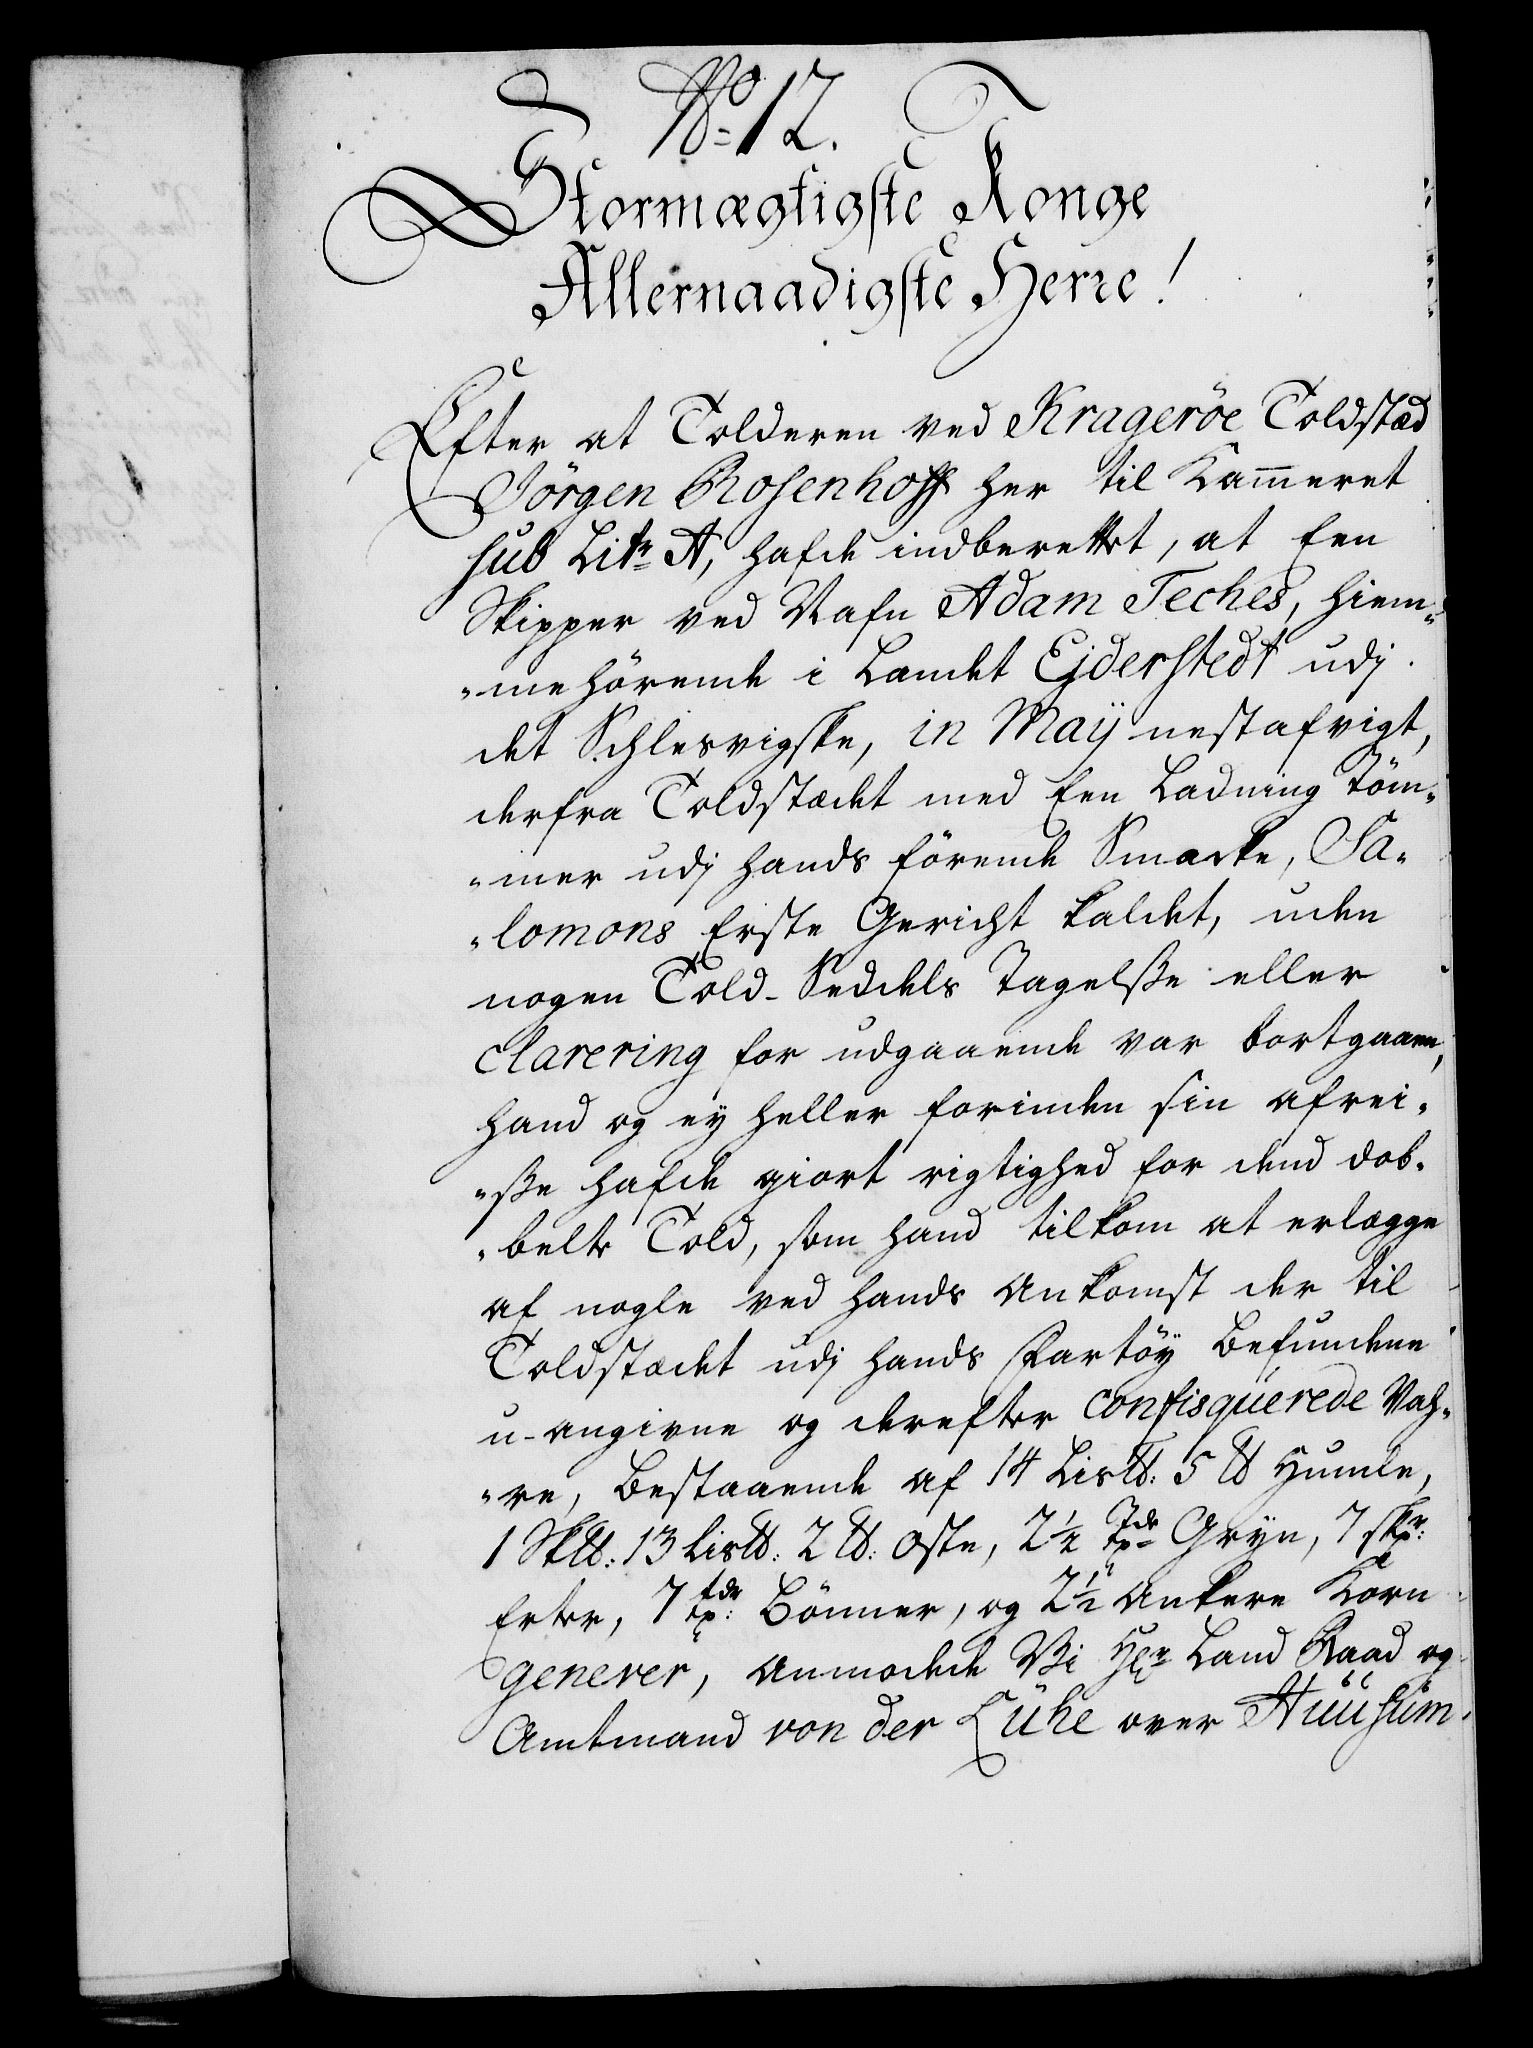 No 12.
Stormægtigste Konge
Allernaadigste Herre!
Efter at Tolderen ved Kragerøe Toldstæd
Jörgen Rosenhoff her til Kammeret
sub Litr A, hafde indberettet, at Een
Skipper ved Nafn Adam Teches, hiem-
-mehörende i Landet Ejderstedt udj
det Schlesvigske, in Maij nestafvigt,
derfra Toldstædet med Een Ladning Töm-
-mer udj hands förende Smacke, Sa-
-lomons Erste Gericht kaldet, uden
nogen Told-Seddels Tagelsße eller
clarering for udgaaende var bortgaaen,
hand og ey heller forinden sin afrei-
-ße hafde giort rigtighed for dend dob-
-belte Told, som hand tilkom at erlægge
af nogle ved hands Ankomst der til
Toldstædet udj hands Fartöy befundene
u-angivne og derefter confisquerede Vah-
-re, bestaaende af 14 Lis℔: 5 ℔ Humle,
1 Sk℔: 13 Lis℔: 2 ℔: Oste, 2½ Tdr Gryn, 7 skpr:
Erter, 7 tdr: Bönner, og 2½ Ankere Korn
genever, anmodede Vi Hr Land Raad og
Amtmand von der Lühe over Huusum